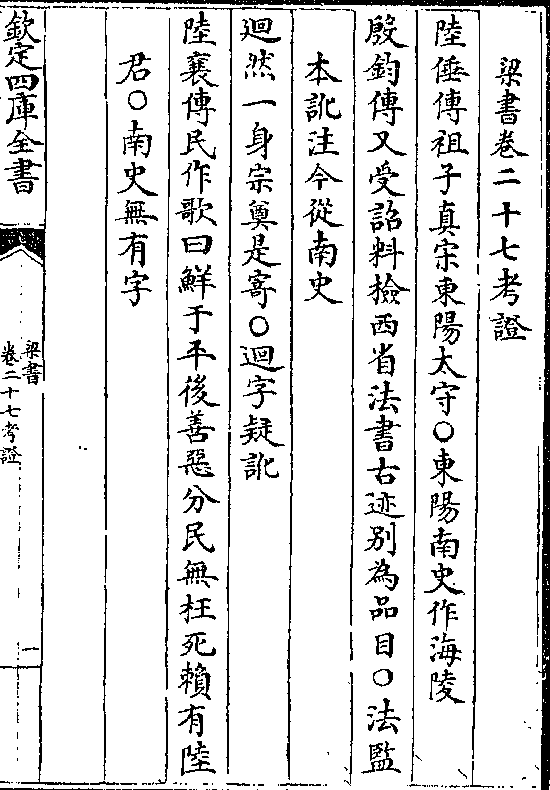 梁書卷二十七考證
陸倕傳祖子真宋東陽太守○東陽南史作海陵
殷鈞傳又受詔料檢西省法書古迹别為品目○法監
本訛注今從南史
迴然一身宗奠是寄○迴字疑訛
陸襄傳民作歌曰鮮于平後善惡分民無枉死賴有陸
君○南史無有字
欽定四庫全書
梁書
卷二十七考證
一